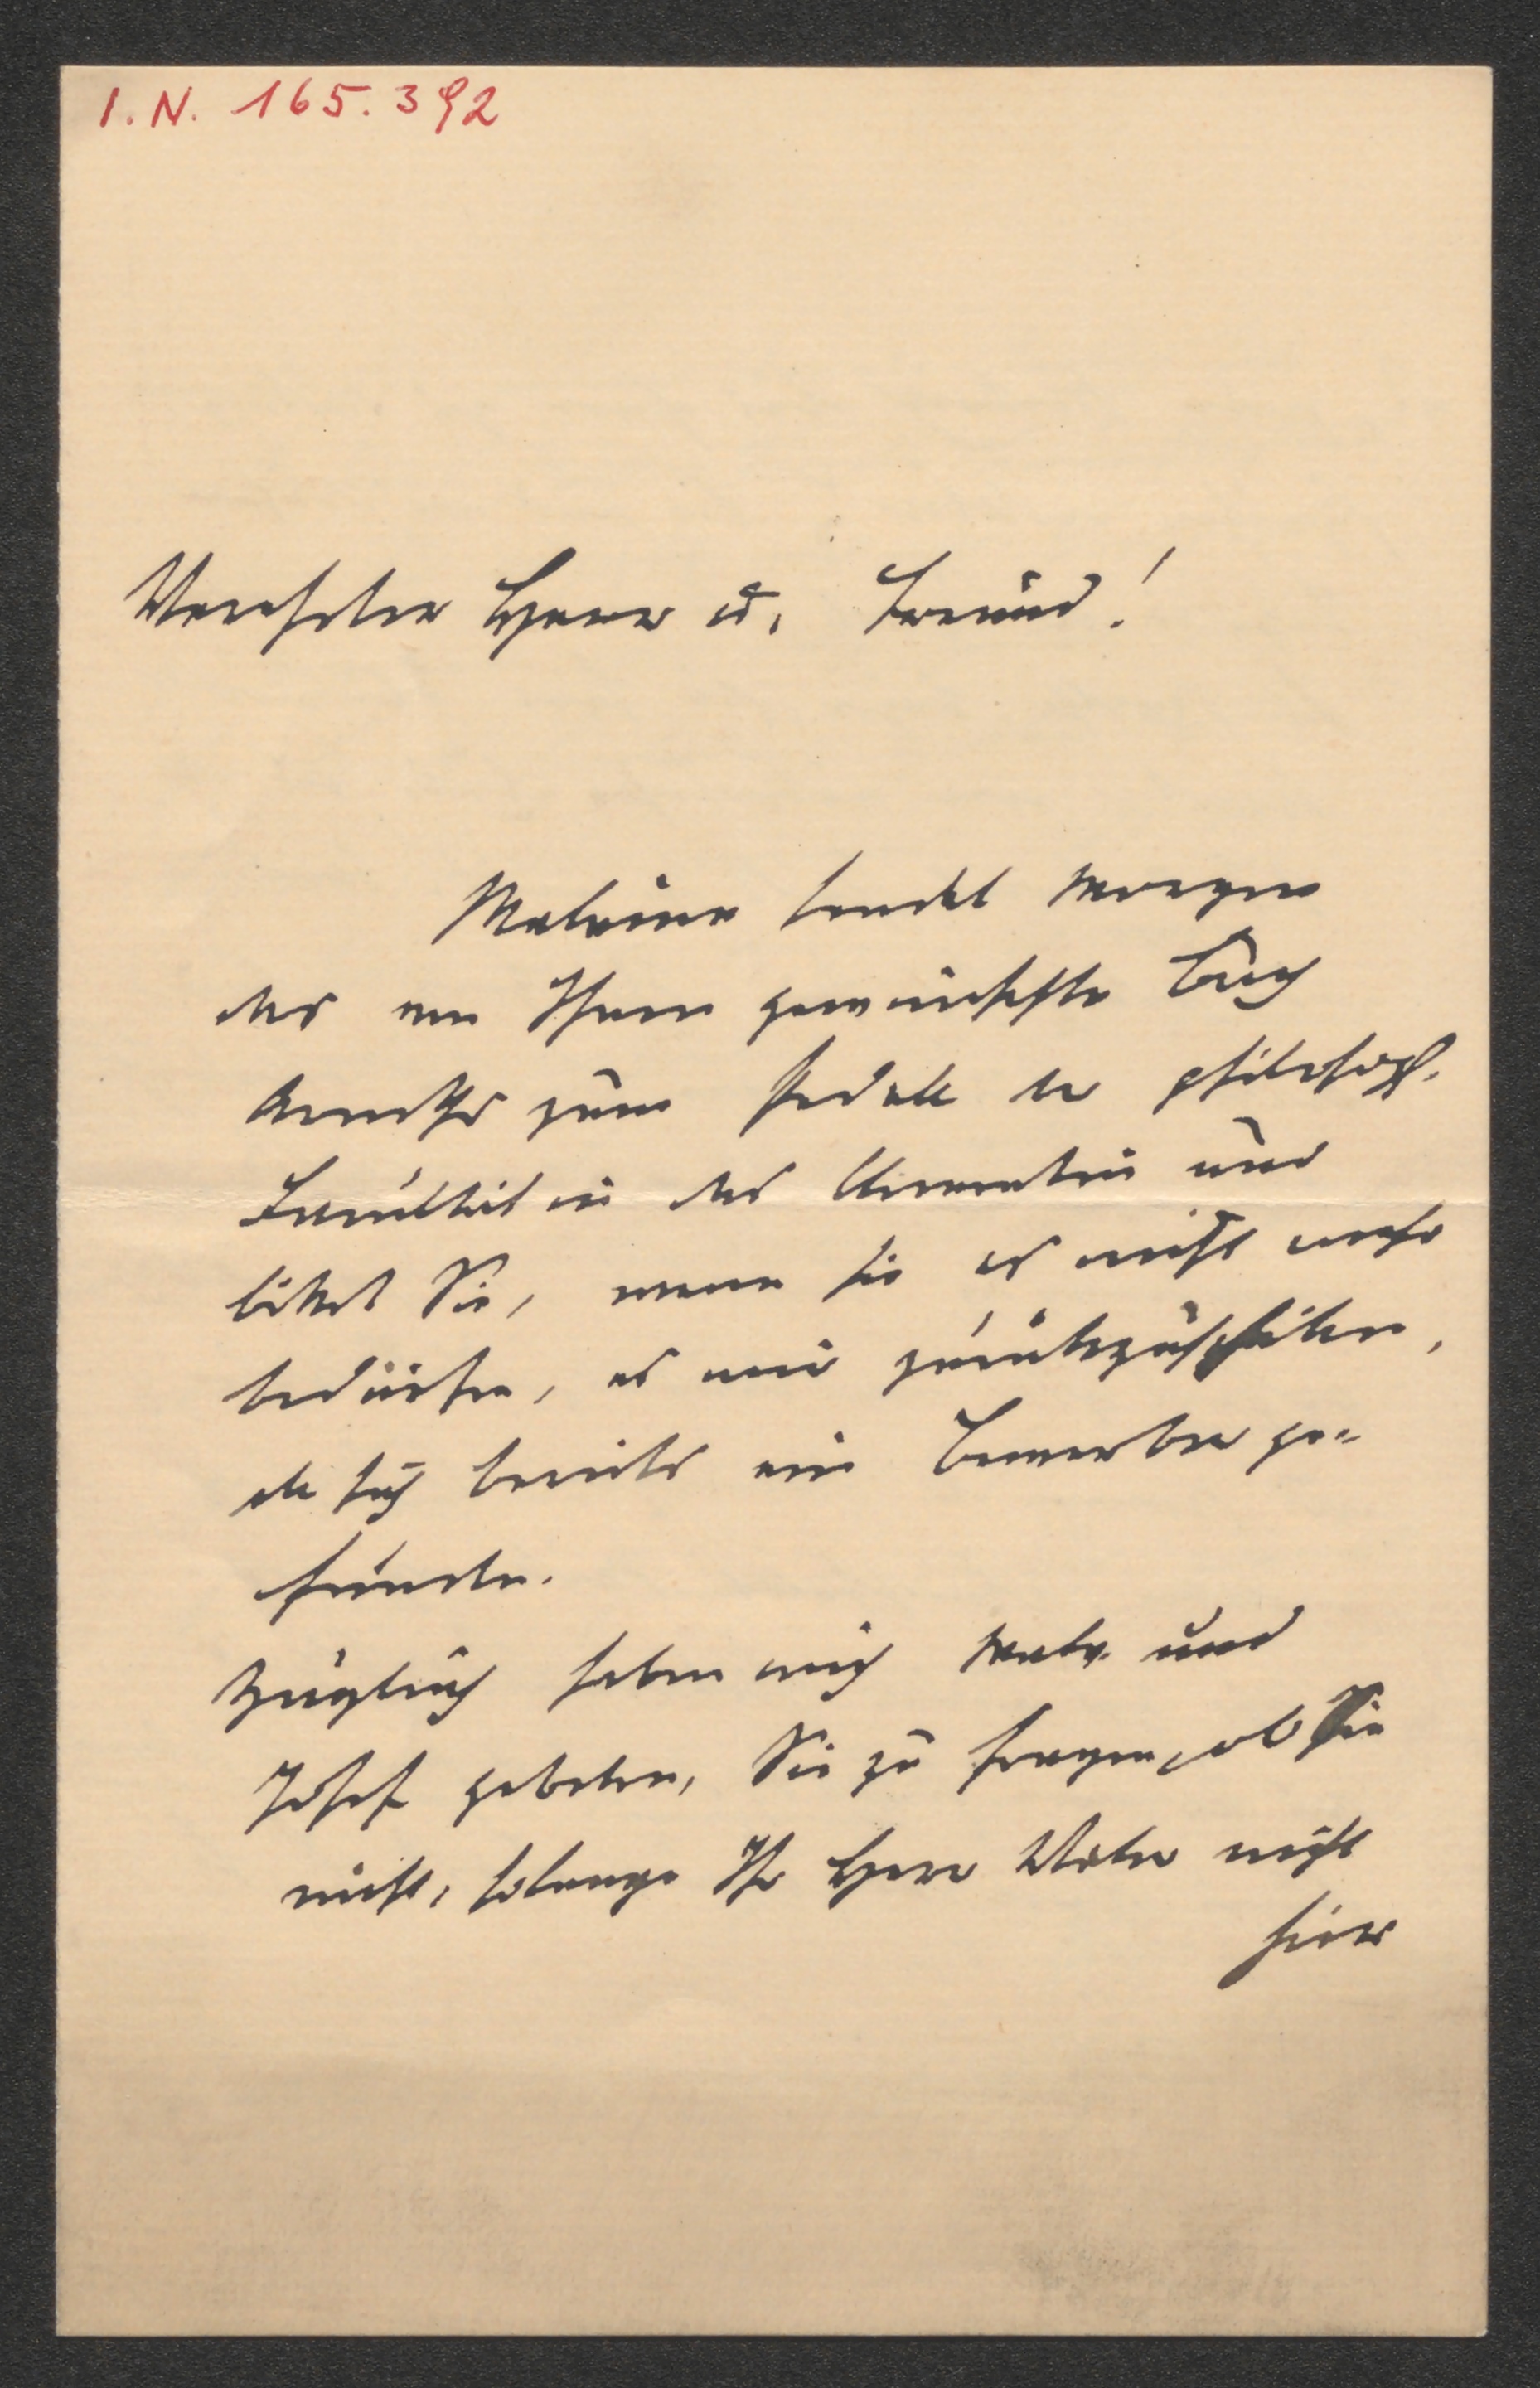 I. N. 165.392
Verehrter Herr u. Freund!
Malvine sendet morgen
das von Ihnen gewünschte Buch
zum Pedell der philosoph.
Facultät in der Universität und
bittet Sie, wenn Sie es nicht mehr
bedürfen, es mir zurückzuschicken,
da sich bereits ein Bewerber ge-
funden.
Zugleich haben mich Malv. und
Josef gebeten, Sie zu fragen, ob Sie
nicht, solange Ihr Herr Vater nicht
hier